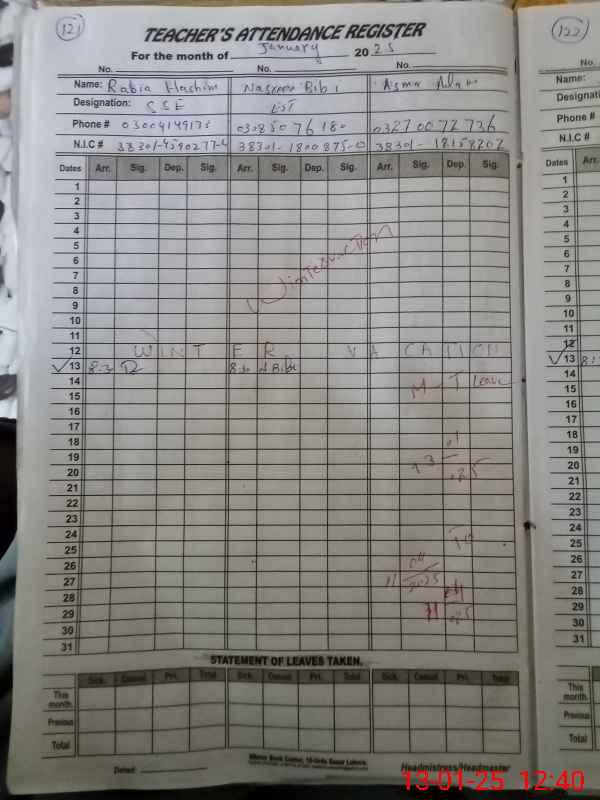 121
TEACHER'S ATTENDANCE REGISTER
For the month of January 2025
No. No. No.
Name: Rabia Hashim Nasreen Bibi Asma
Designation: SSE EST
Phone # 03004149175 03085076180 03270072736
N.I.C # 38301-4590277-6 38301-1800875-0 38301-18158202
Dates Arr. Sig. Dep. Sig. Arr. Sig. Dep. Sig. Arr. Sig. Dep. Sig.
1
2
3
4
5
6
7
8
9
10
11
12 WINTER VACATION
13 8:30 8:30 N Bibi
14 M-T Leave
15
16
17
18
19 13 01
20 .25
21
22
23
24
25 To
26
27 11 04 2025
28 04
29 11 .25
30
31
STATEMENT OF LEAVES TAKEN.
Sick. Casual Pri. Total Sick. Casual Pri. Total Sick. Casual Pri. Total
This month.
Previous
Total
Dated:
Headmistress/Headmaster
122
No.
Name:
Phone #
N.I.C #
Dates Arr.
1
2
3
4
5
6
7
8
9
10
11
12
13
14
15
16
17
18
19
20
21
22
23
24
25
26
27
28
29
30
31
This month.
Previous
Total
13-01-25 12:40